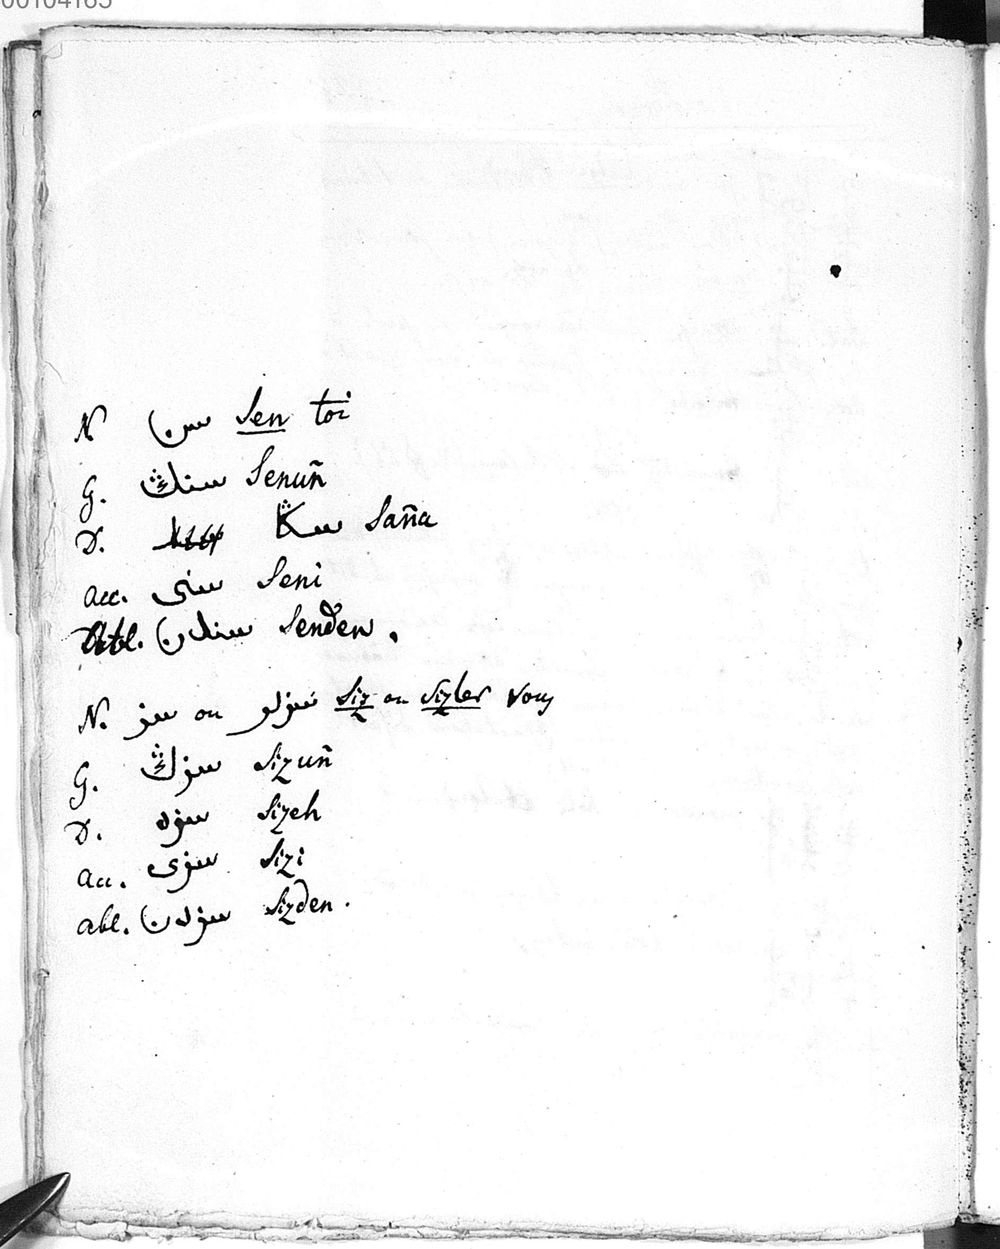 00104165
N سن Sen toi
G. سنڭ Senuñ
D. سڭا Saña
acc. سنى Seni
Abl. سندن Senden.
N. سز ou سزلر siz ou sizler vous
G. سزڭ sizuñ
D. سزه sizeh
acc. سزى sizi
abl. سزدن sizden.